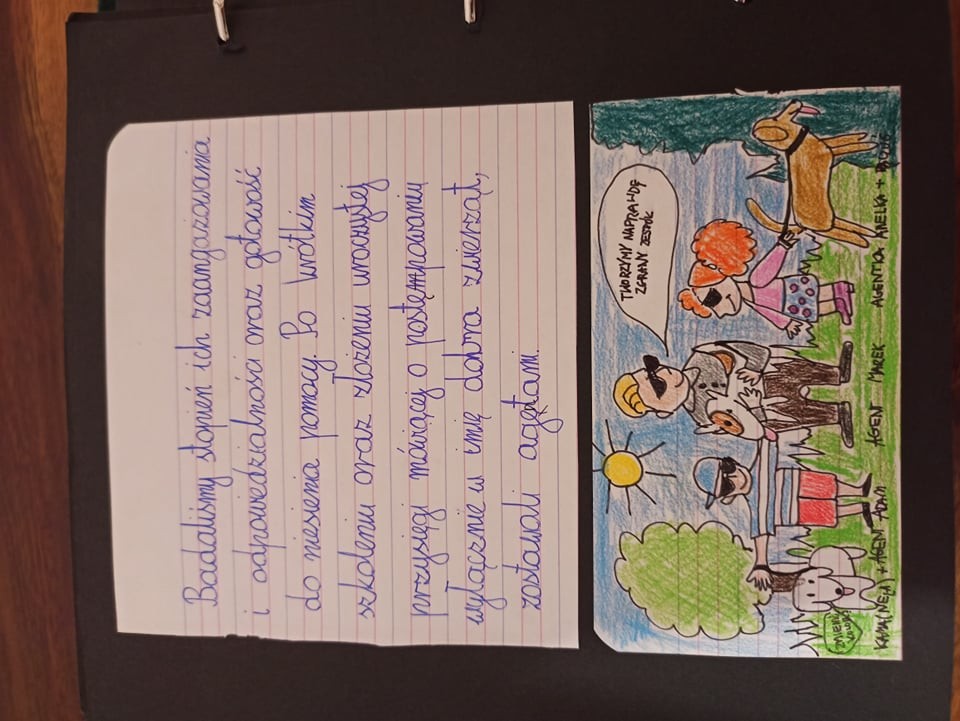 Badaliśmy stopień ich zaangażowania
i odpowiedzialności oraz gotowość
do niesienia pomocy. Po krótkim
szkoleniu oraz złożeniu uroczystej
przysięgi mówiącej o postępowaniu
wyłącznie w imię dobra zwierząt,
zostawali agętami.
TWORZYMY NAPRAWDĘ
ZGRANY ZESPÓŁ
ZMIEŃ
AGEN ADAM
AGEN MAREK
AGENTKA ABELKA +